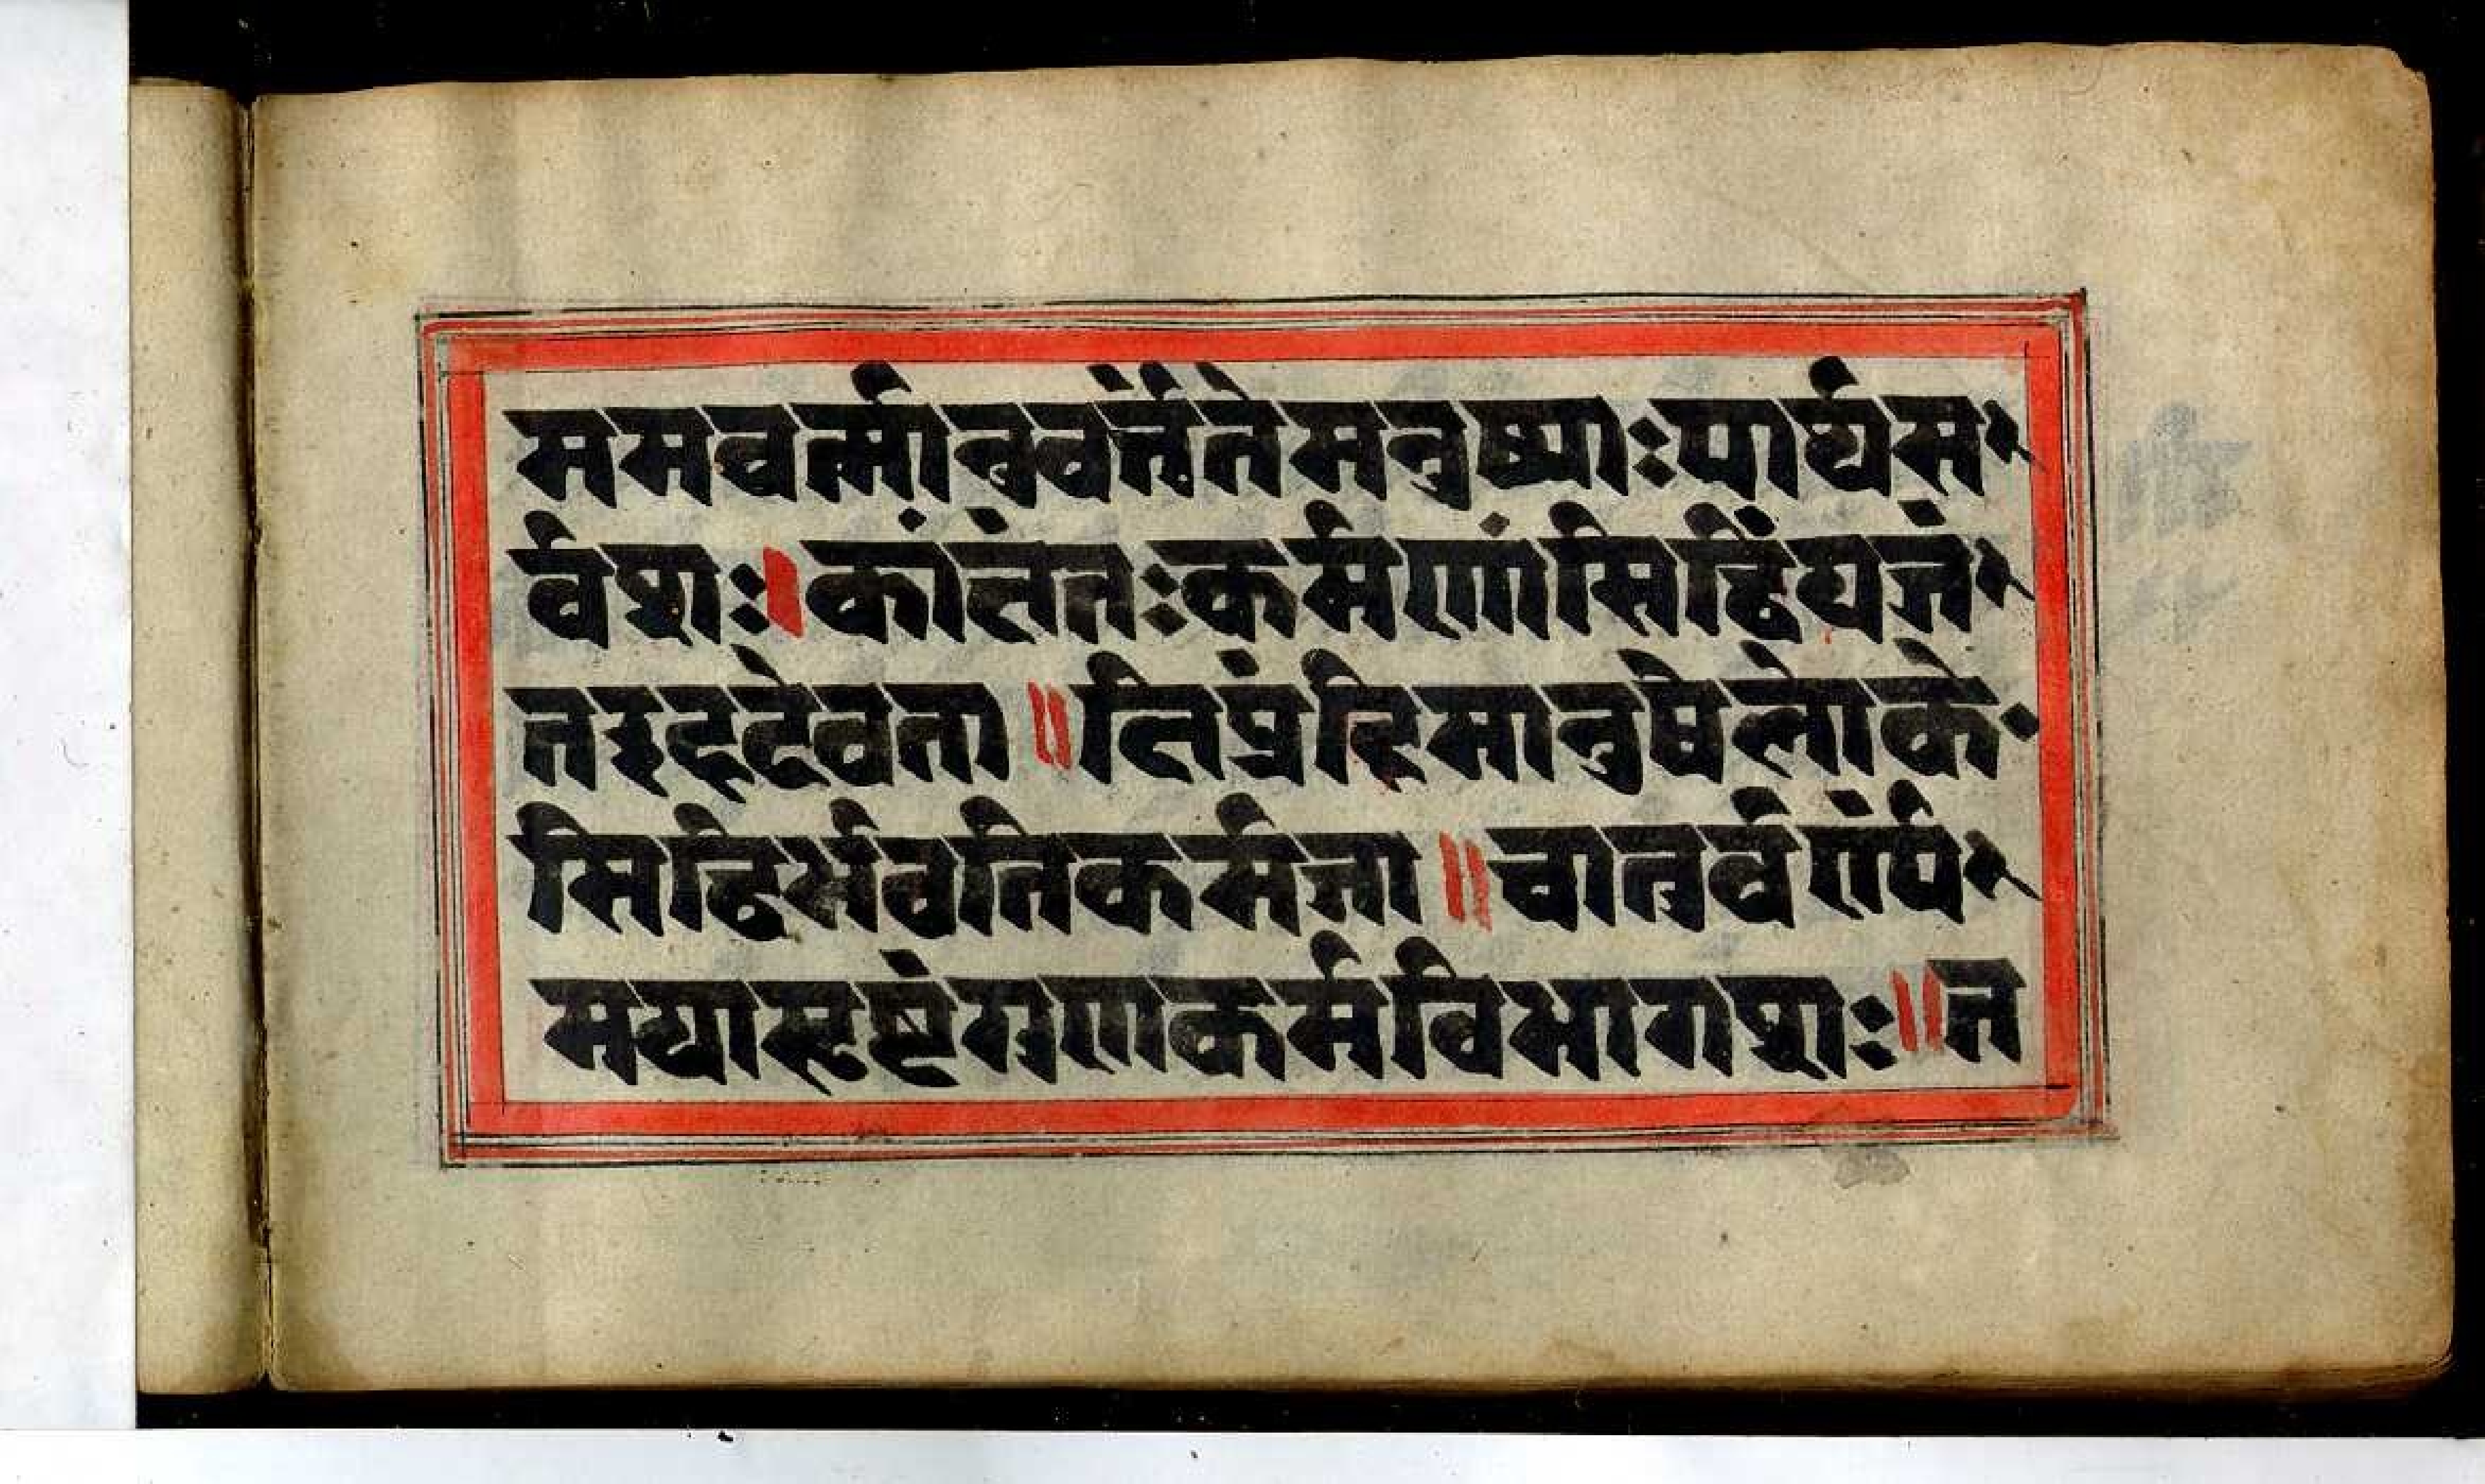 ममवर्त्मानुवर्त्तंते मनुष्याः पार्थ स
र्वशः । कांक्षंतः कर्मणां सिद्धिं यजं
त इह देवता ॥ क्षिप्रं हि मानुषे लोके
सिद्धिर्भवति कर्मजा ॥ चातुर्वर्ण्यं
मया सृष्टं गुणकर्मविभागशः ॥ त